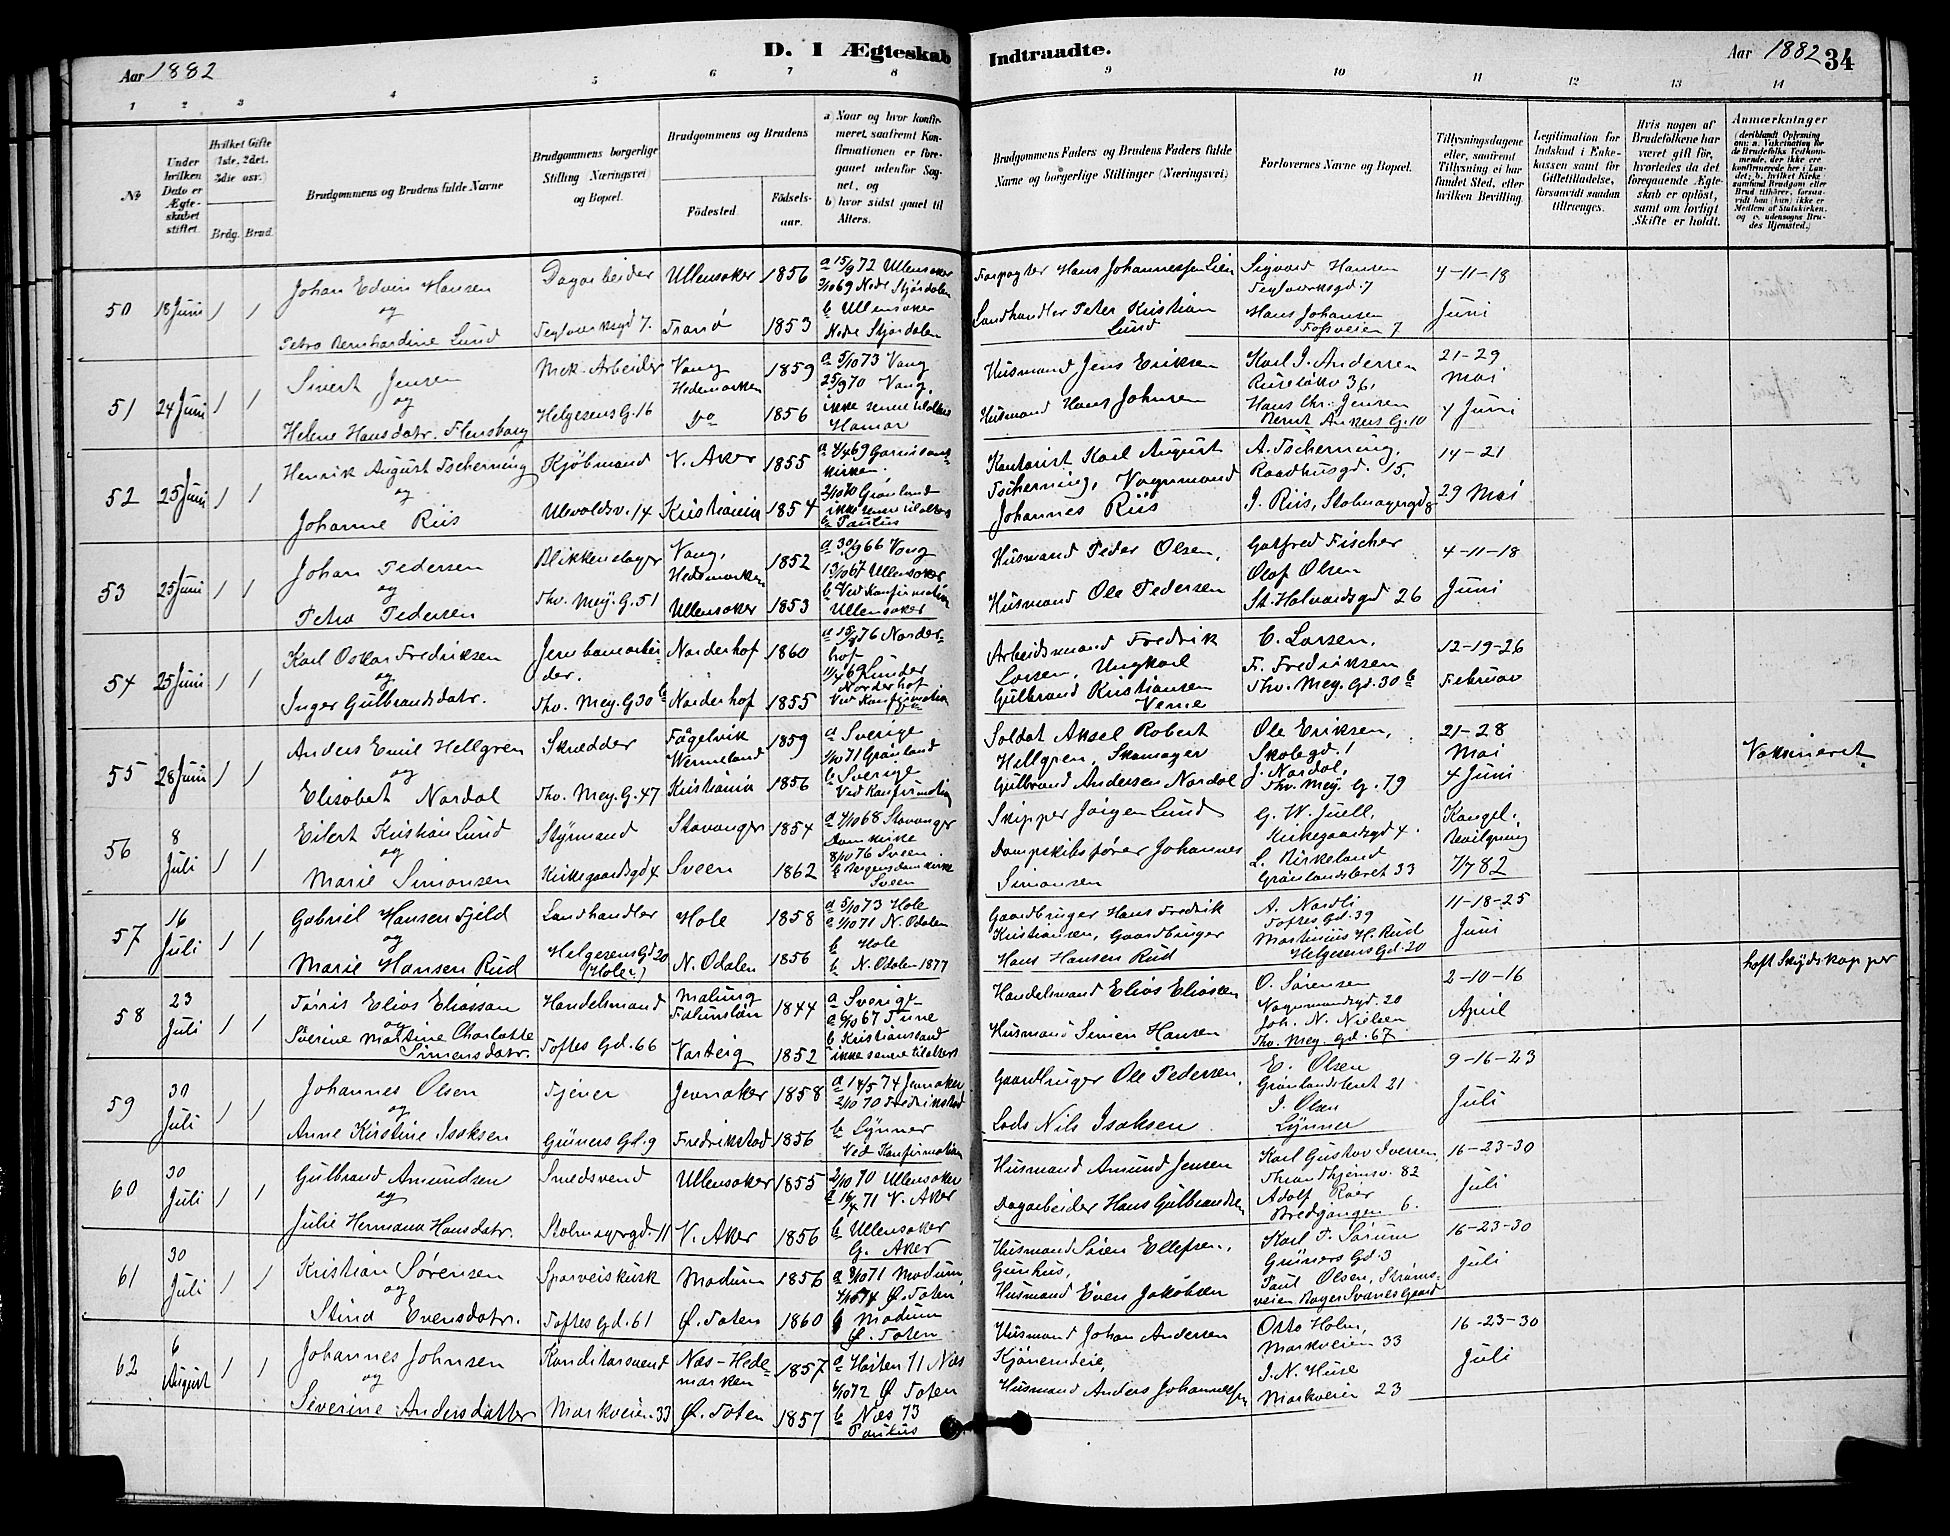 Aar 1882
D. I Ægteskab Indtraadte.
Aar 1882 34
1 2 3 4 5 6 7 8 9 10 11 12 13 14
No.
Under hvilken Dato er Ægteskabet stiftet.
Hvilket Gifte (1ste, 2det, 3die osv.)
Brdg. Brud.
Brudgommens og Brudens fulde Navne
Brudgommens borgerlige Stilling (Næringsvei) og Bopæl.
Brudgommens og Brudens
Fødested.
Fødselsaar.
a) Naar og hvor konfirmeret, saafremt Konfirmationen er foregaaet udenfor Sognet, og
b) hvor sidst gaaet til Alters.
Brudgommens Faders og Brudens Faders fulde Navne og borgerlige Stillinger (Næringsvei)
Forlovernes Navne og Bopæl.
Tillysningsdagene eller, saafremt Tillysning ei har fundet Sted, efter hvilken Bevilling.
Legitimation for Indskud i Enkekassen samt for Giftetilladelse, forsaavidt saadan tiltrænges.
Hvis nogen af Brudefolkene har været gift før, hvorledes da det foregaaende Ægteskab er opløst, samt om lovligt Skifte er holdt.
Anmærkninger
50 18 Juni 1 1
Johan Edvin Hansen
og
Petra Bernhardine Lund
Dagarbeider
Teglverksgd 7.
Ullensaker 1856
Tranø 1853
a 15/9 72 Ullensaker
3/10 69 Nedr Stjørdalen
b Ullensaker
Nedr Stjørdalen
Forpagter Hans Johannessen Lien
Landhandler Peter Kristian
Lund
Sigvard Hansen
Teglverksgd. 7
Hans Johansen
Fossveien 7
4-11-18
Juni
51 24 Juni 1 1
Sivert Jensen
og
Helene Hansdatr. Flensborg
Mek. Arbeider
Helgesens G. 16
Vang
Hedemarken 1859
Do 1856
a 5/10 73 Vang
25/9 70 Vang
ikke senere til alters
Hamar
Husmand Jens Eriksen
Husmand Hans Johnsen
Karl J. Andersen
Ruseløkv 36,
Hans Chr. Jensen
Bernt Ankers G. 10
21-29
Mai
4 Juni
52 25 Juni 1 1
Henrik August Tscherning
og
Johanne Riis
Kjøbmand
Ulevoldsv. 14
V. Aker 1855
Kristiania 1854
a 4/4 69 Garnisons-
kirken.
2/10 70 Grønland
ikke senere til alters
b Paulus
Kontorist Karl August
Tscherning, Vognmand
Johannes Riis
A. Tscherning,
Raadhusgd. 15.
J. Riis, Stolmagergd 8
14-21
29 Mai
53 25 Juni 1 1
Johan Pedersen
og
Petra Pedersen
Blikkenslager
Thv. Mey. G. 51
Vang,
Hedemarken 1852
Ullensaker 1853
a 30/9 66 Vang
13/10 67 Ullensaker
b Ved Konfirmation
Ullensaker
Husmand Peder Olsen,
Husmand Ole Pedersen
Gotfred Fischer
Olaf Olsen
St. Halvardsgd 26
4-11-18
Juni
54 25 Juni 1 1
Karl Oskar Fredriksen
og
Inger Gulbrandsdatr.
Jernbanearbei-
der.
Thv. Mey. G 30 b
Norderhof 1860
Norderhof 1855
Norder-
hof
Lunder
Norderhof
Ved Konfirmation
Arbeidsmand Fredrik
Larsen, Ungkarl
Gulbrand Kristiansen
Verne
C. Larsen,
F. Fredriksen
Thv. Mey. Gd. 30 b
12-19-26
Februar
55 28 Juni 1 1
Anders Emil Hellgren
og
Elisabet Nordal
Skrædder
Thv. Mey. G. 47
Fågelvik
Wermeland 1859
Kristiania 1856
a Sverige
1/10 71 Grønland
b Sverige
Ved Konfirmation
Soldat Aksel Robert
Hellgren, Skomager
Gulbrand Andersen Nordal
Ole Eriksen,
Skolegd. 1
J. Nordal,
Thv. Mey. G. 79
21-28
Mai
4 Juni
Vaksineret
56 8 Juli 1 1
Eilert Kristian Lund
og
Marie Simonsen
Styrmand
Kirkegaardsgd 4
Stavanger 1854
Sveen 1862
a 4/10 68 Stavanger
Domkirke
8/10 76 Sveen
Sveen
Skipper Jørgen Lund
Dampskibsfører Johannes
Simonsen
G. W. Juell,
Kirkegaardsgd 4.
L. Birkeland
Grønlandsleret 33
Kongel.
Bevilgning
7/7 82
57 16 Juli 1 1
Gabriel Hansen Fjeld
og
Marie Hansen Rud
Landhandler
Helgesens Gd 20
(Hole)
Hole 1858
N. Odalen 1856
a 5/10 73 Hole
a 1/10 71 N. Odalen
b Hole
b N. Odalen 1877
Gaardbruger Hans Fredrik
Kristiansen, Gaardbruger
Hans Hansen Rud
A. Nordli
Toftes Gd. 39
Martinius H. Rud
Helgesens Gd. 20
11-18-25
Juni
58 23 Juli 1 1
Elias Eliassan
og
Søverine Martine Charlotte
Simensdatr.
Handelsmand
Toftes Gd. 66
Malung
Falunslän 1844
Varteig 1852
a Sverige
a 6/10 67 Tune
b Kristianssand
ikke senere til alters
Handelsmand Elias Eliassen
Husmand Simen Hansen
O. Sørensen
Vognmandsgd. 20
Joh. N. Nielsen
Thv. Mey. Gd. 67
2-10-16
April
haft Skydskopper
59 30 Juli 1 1
Johannes Olsen
og
Anne Kirstine Isaksen
Tjener
Grüners Gd. 9
Jevnaker 1858
Fredrikstad 1856
a 14/5 74 Jevnaker
2/10 70 Fredrikstad
b Lynner
Ved Konfirmation
Gaardbruger Ole Pedersen,
Lods Nils Isaksen
E. Olsen
Grønlandsleret 21
J. Olsen
Lynner
9-16-23
Juli
60 30 Juli 1 1
Gulbrand Amundsen
og
Julie Hermana Hansdatr.
Smedsvend
Stolmagergd. 11
Ullensaker 1855
V. Aker 1856
2/10 70 Ullensaker
a 16/4 71 V. Aker
b Ullensaker
G. Aker
Husmand Amund Jensen
Dagarbeider Hans Gulbrandsen
Karl Gustav Iversen
Throndhjemsv. 82
Adolf Roer
Bredgangen 6.
16-23-30
Juli
61 30 Juli 1 1
Kristian Sørensen
og
Stina Evensdatr.
Sporveiskusk
Toftes Gd. 61
Modum 1856
Ø. Toten 1860
71 Modum,
Ø. Toten
b Modum
Ø. Toten
Husmand Søren Ellefsen,
Gunhus,
Husmand Even Jakobsen
Karl F. Sørum
Grüners Gd. 3
Paul Olsen, Strøms-
veien Bager Svanes Gaard
16-23-30
Juli
62 6 August 1 1
Johannes Johnsen
og
Severine Andersdatter
Konditorsvend
Markveien 33
Næs-Hede-
marken 1857
Ø. Toten 1857
a Høsten 71 Næs
6/10 72 Ø Toten
b Næs 73
Paulus
Husmand Johan Andersen
Husmand Anders Johannessen
Otto Holm,
Markveien 33
J. N. Huse
Markveien 23
16-23-30
Juli